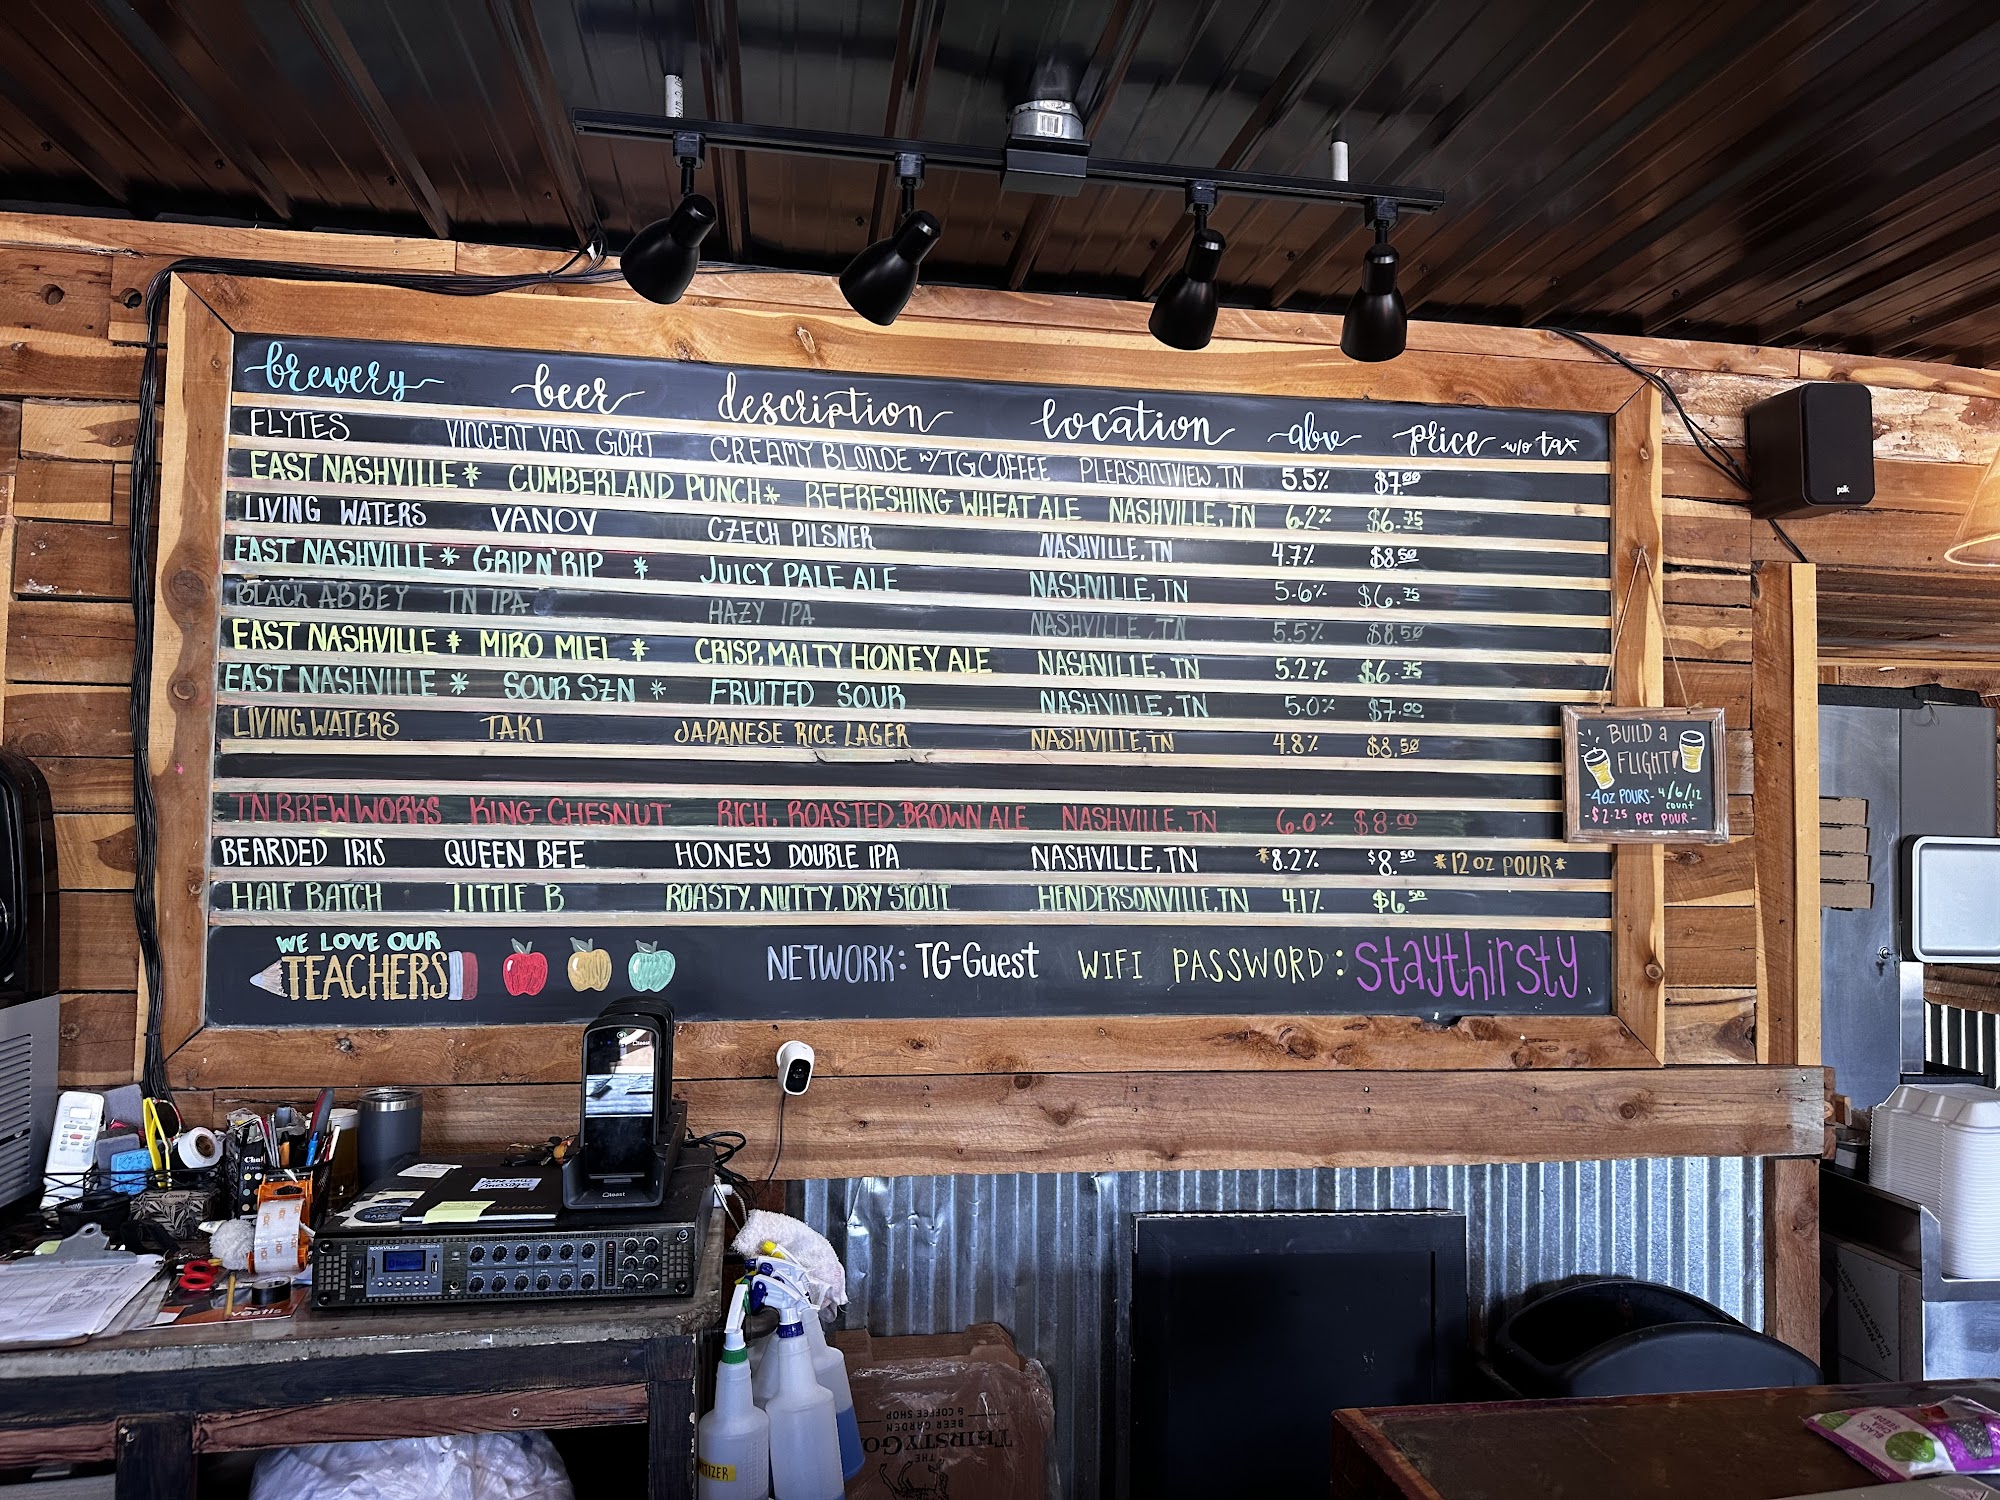 brewery beer description location abv price w/o tax
FLYTES VINCENT VAN GOAT CREAMY BLONDE w/TG COFFEE PLEASANTVIEW, TN 5.5% $7.00
EAST NASHVILLE * CUMBERLAND PUNCH * REFRESHING WHEAT ALE NASHVILLE, TN 6.2% $6.75
LIVING WATERS VANOV CZECH PILSNER NASHVILLE, TN 4.7% $8.50
EAST NASHVILLE * GRIP N' RIP * JUICY PALE ALE NASHVILLE, TN 5.6% $6.75
BLACK ABBEY TN IPA HAZY IPA NASHVILLE, TN 5.5% $8.50
EAST NASHVILLE * MIRO MIEL * CRISP, MALTY HONEY ALE NASHVILLE, TN 5.2% $6.75
EAST NASHVILLE * SOUR SZN * FRUITED SOUR NASHVILLE, TN 5.0% $7.00
LIVING WATERS TAKI JAPANESE RICE LAGER NASHVILLE, TN 4.8% $8.50
TN BREW WORKS KING CHESNUT RICH, ROASTED BROWN ALE NASHVILLE, TN 6.0% $8.00
BEARDED IRIS QUEEN BEE HONEY DOUBLE IPA NASHVILLE, TN *8.2% $8.50 *12 oz POUR*
HALF BATCH LITTLE B ROASTY, NUTTY, DRY STOUT HENDERSONVILLE, TN 4.1% $6.50
WE LOVE OUR
TEACHERS
NETWORK: TG-Guest WIFI PASSWORD: staythirsty
BUILD a
FLIGHT!
-4oz POURS- 4/6/12
count
-$2.25 per pour-
polk
toast
ROCKVILLE
vestis
THE
BEER GARDEN
& COFFEE SHOP